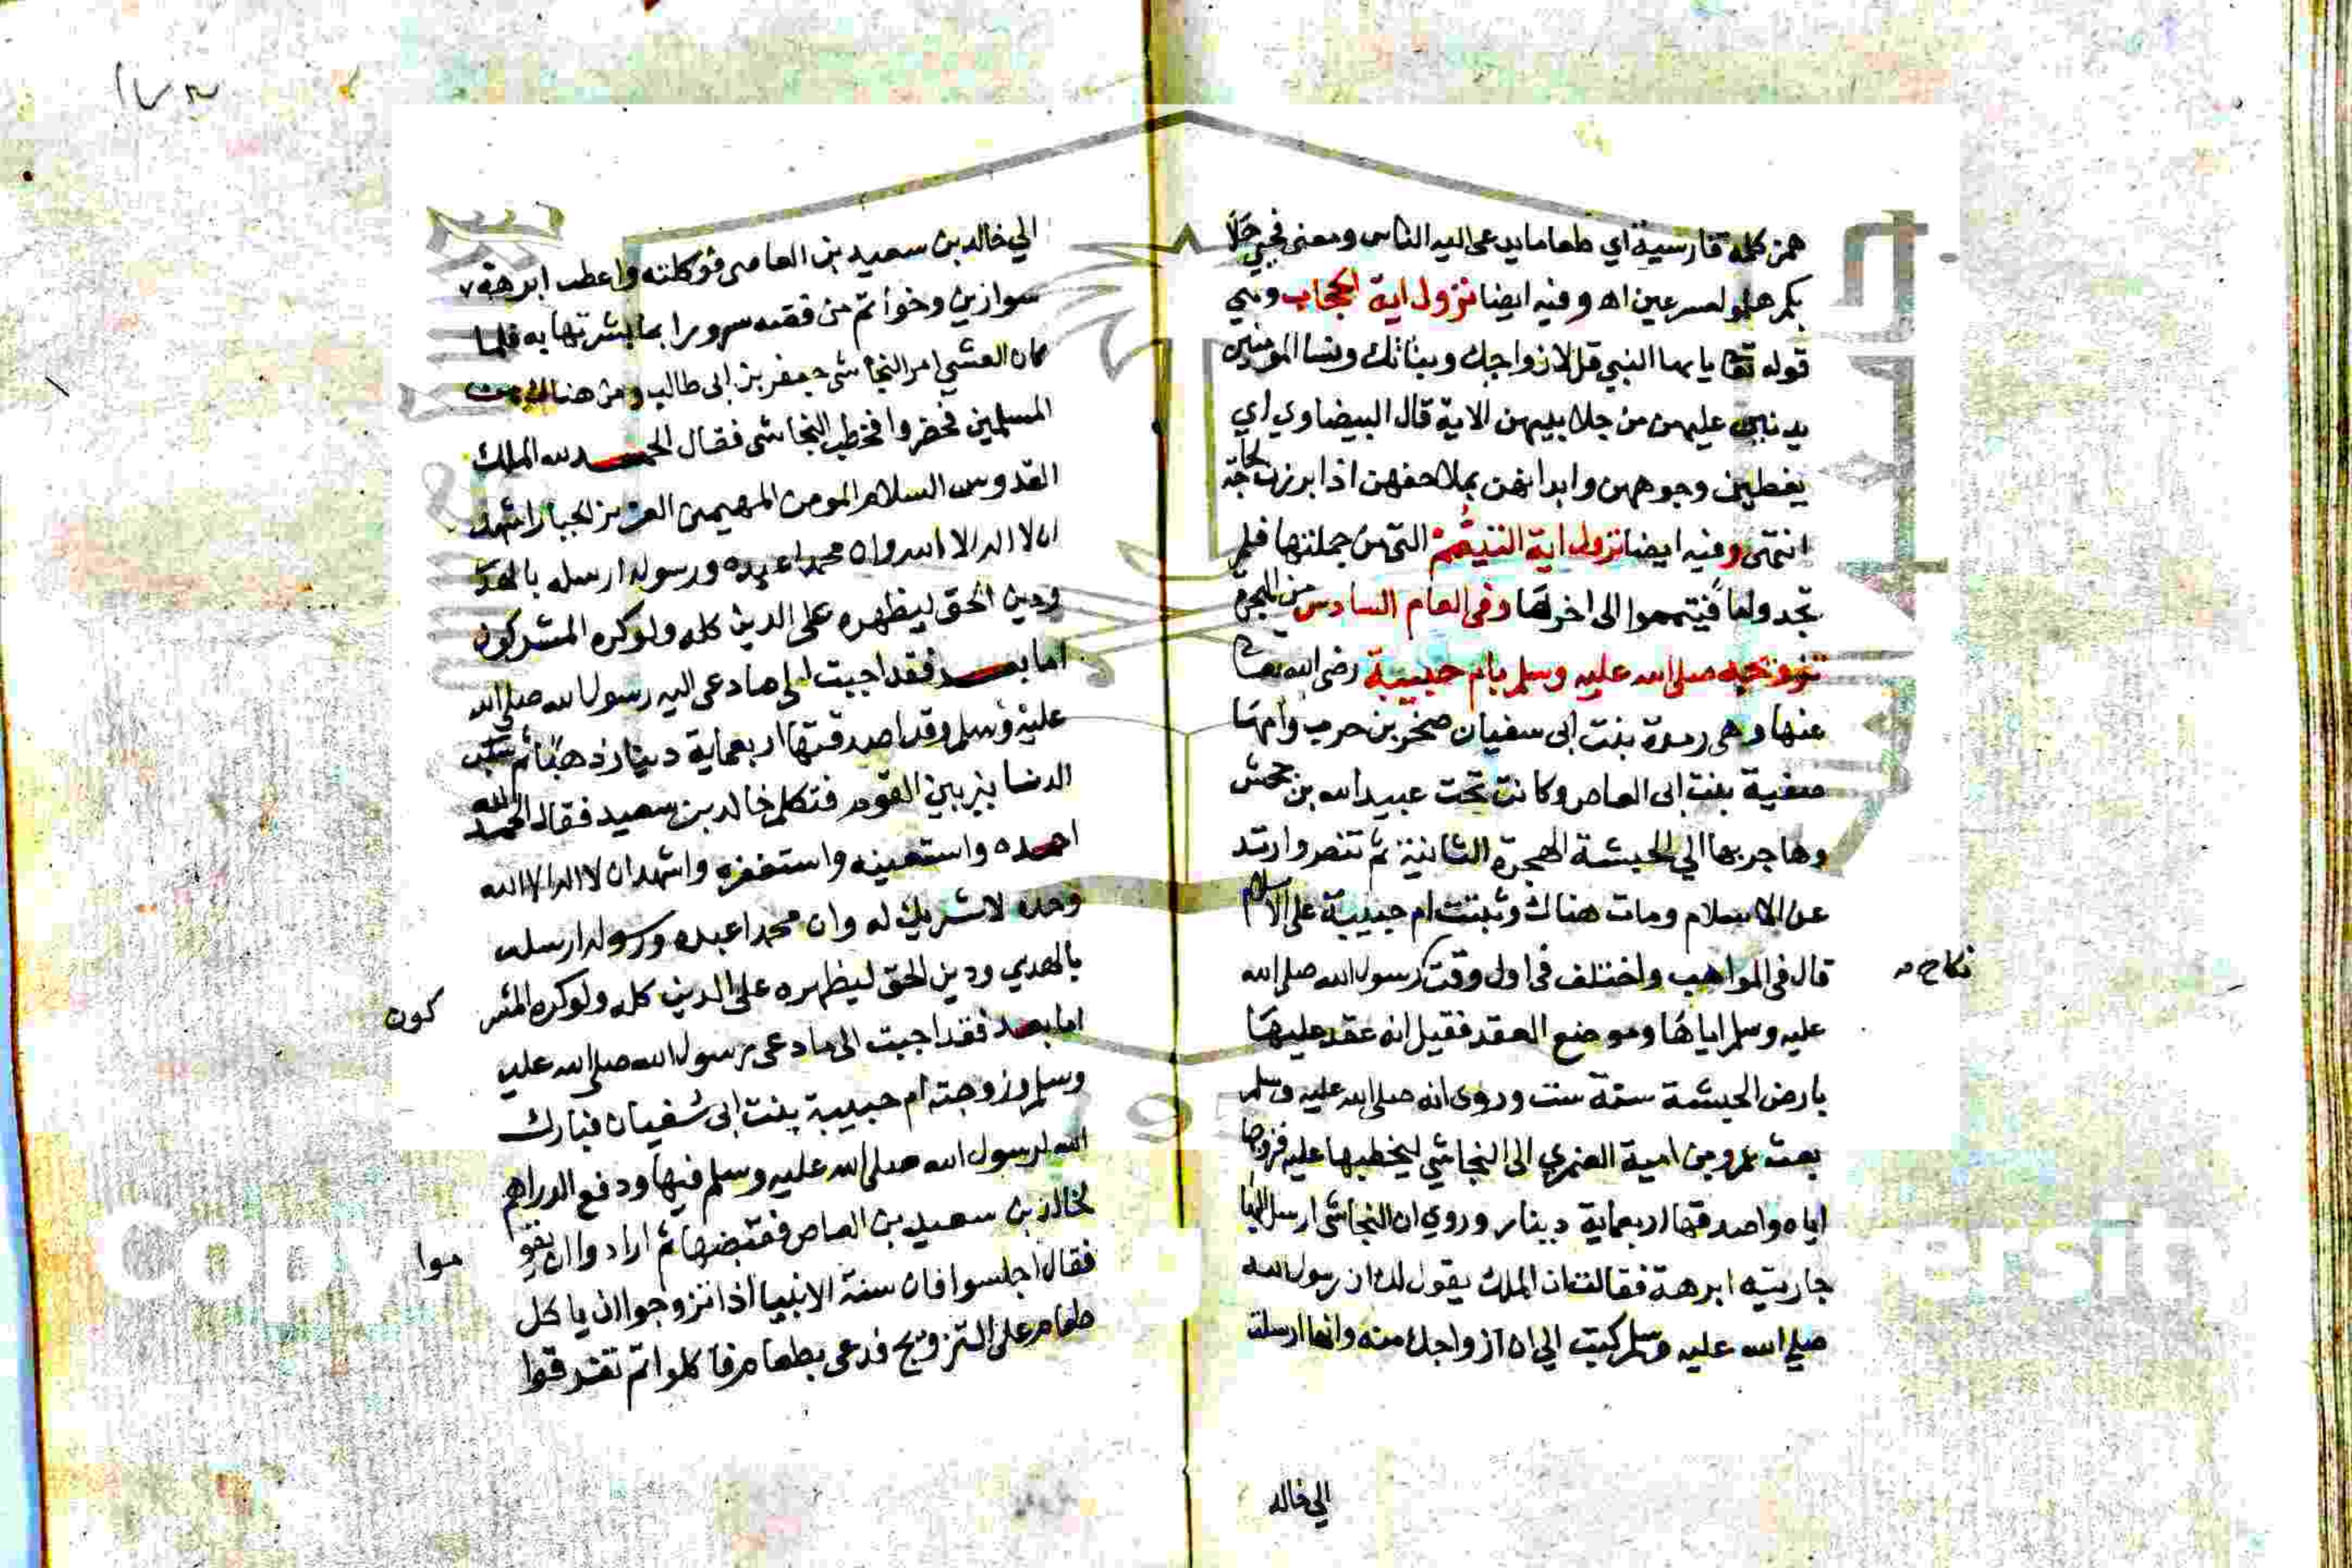 همز كلمة فارسية اي طعاما يدعى اليه الناس ومعنى فحي هلا
بكم هلموا مسرعين اه وفيه ايضا نزول اية الحجاب وهي
قوله تعا يايها النبي قل لازواجك وبناتك ونسا المومنين
يدنين عليهن من جلابيبهن الاية قال البيضاوي اي
يغطين وجوههن وابدانهن بملاحفهن اذا برزن لحاجة
انتهى وفيه ايضا نزول اية التيمم التي من جملتها فلم
تجدوا ما فتيمموا الى اخرها وفي العام السادس من الهجرة
تزوجه صلى الله عليه وسلم بام حبيبة رضى الله تعا
عنها وهى رملة بنت ابى سفيان صخر بن حرب وامها
صفية بنت ابى العاص وكانت تحت عبيد الله بن جحش
وهاجر بها الي الحبشة الهجرة الثانية ثم تنصر وارتد
عن الاسلام ومات هناك وثبتت ام حبيبة على الاسلام
قال في المواهب واختلف فى اول وقت رسول الله صلى الله
نكاح
عليه وسلم اياها وموضع العقد فقيل انه عقد عليها
بارض الحبشة ستة ست وروى انه صلى الله عليه وسلم
بعث عمرو بن امية الضمري الى النجاشي ليخطبها عليه فزوجها
اياه واصدقها اربعماية دينار وروي ان النجاشى ارسل اليها
جاريته ابرهة فقالت ان الملك يقول لك ان رسول الله
صلى الله عليه وسلم كتب الي ان ازواجك منه وانها ارسلت
الي خالد
الي خالد بن سعيد بن العاصى فوكلته واعطت ابرهة
سوارين وخواتم من فضة سرورا بما بشرتها به فلما
كان العشي امر النجاشى جعفر بن ابى طالب ومن هناك من
المسلمين فحضروا فخطب النجاشى فقال الحمد لله الملك
القدوس السلام المومن المهيمن العزيز الجبار اشهد
ان لا اله الا الله وان محمدا عبده ورسوله ارسله بالهدى
ودين الحق ليظهره على الدين كله ولو كره المشركون
اما بعد فقد اجبت الى ما دعى اليه رسول الله صلى الله
عليه وسلم وقد اصدقتها اربعماية دينار ذهبا ثم سكب
الدنانير بين القوم فتكلم خالد بن سعيد فقال الحمد لله
احمده واستعينه واستغفره واشهد ان لا اله الا الله
وحده لا شريك له وان محمدا عبده ورسوله ارسله
بالهدي ودين الحق ليظهره على الدين كله ولو كره المشر كون
اما بعد فقد اجبت الى ما دعى رسول الله صلى الله عليه
وسلم وزوجته ام حبيبة بنت ابى سفيان فبارك
الله لرسول الله صلى الله عليه وسلم فيها ودفع الدراهم
لخالد بن سعيد بن العاص فقبضها ثم ارادوا ان يقو موا
فقال اجلسوا فان سنة الانبيا اذا تزوجوا ان ياكل
طعام على التزويج فدعى بطعام فاكلوا ثم تفرقوا